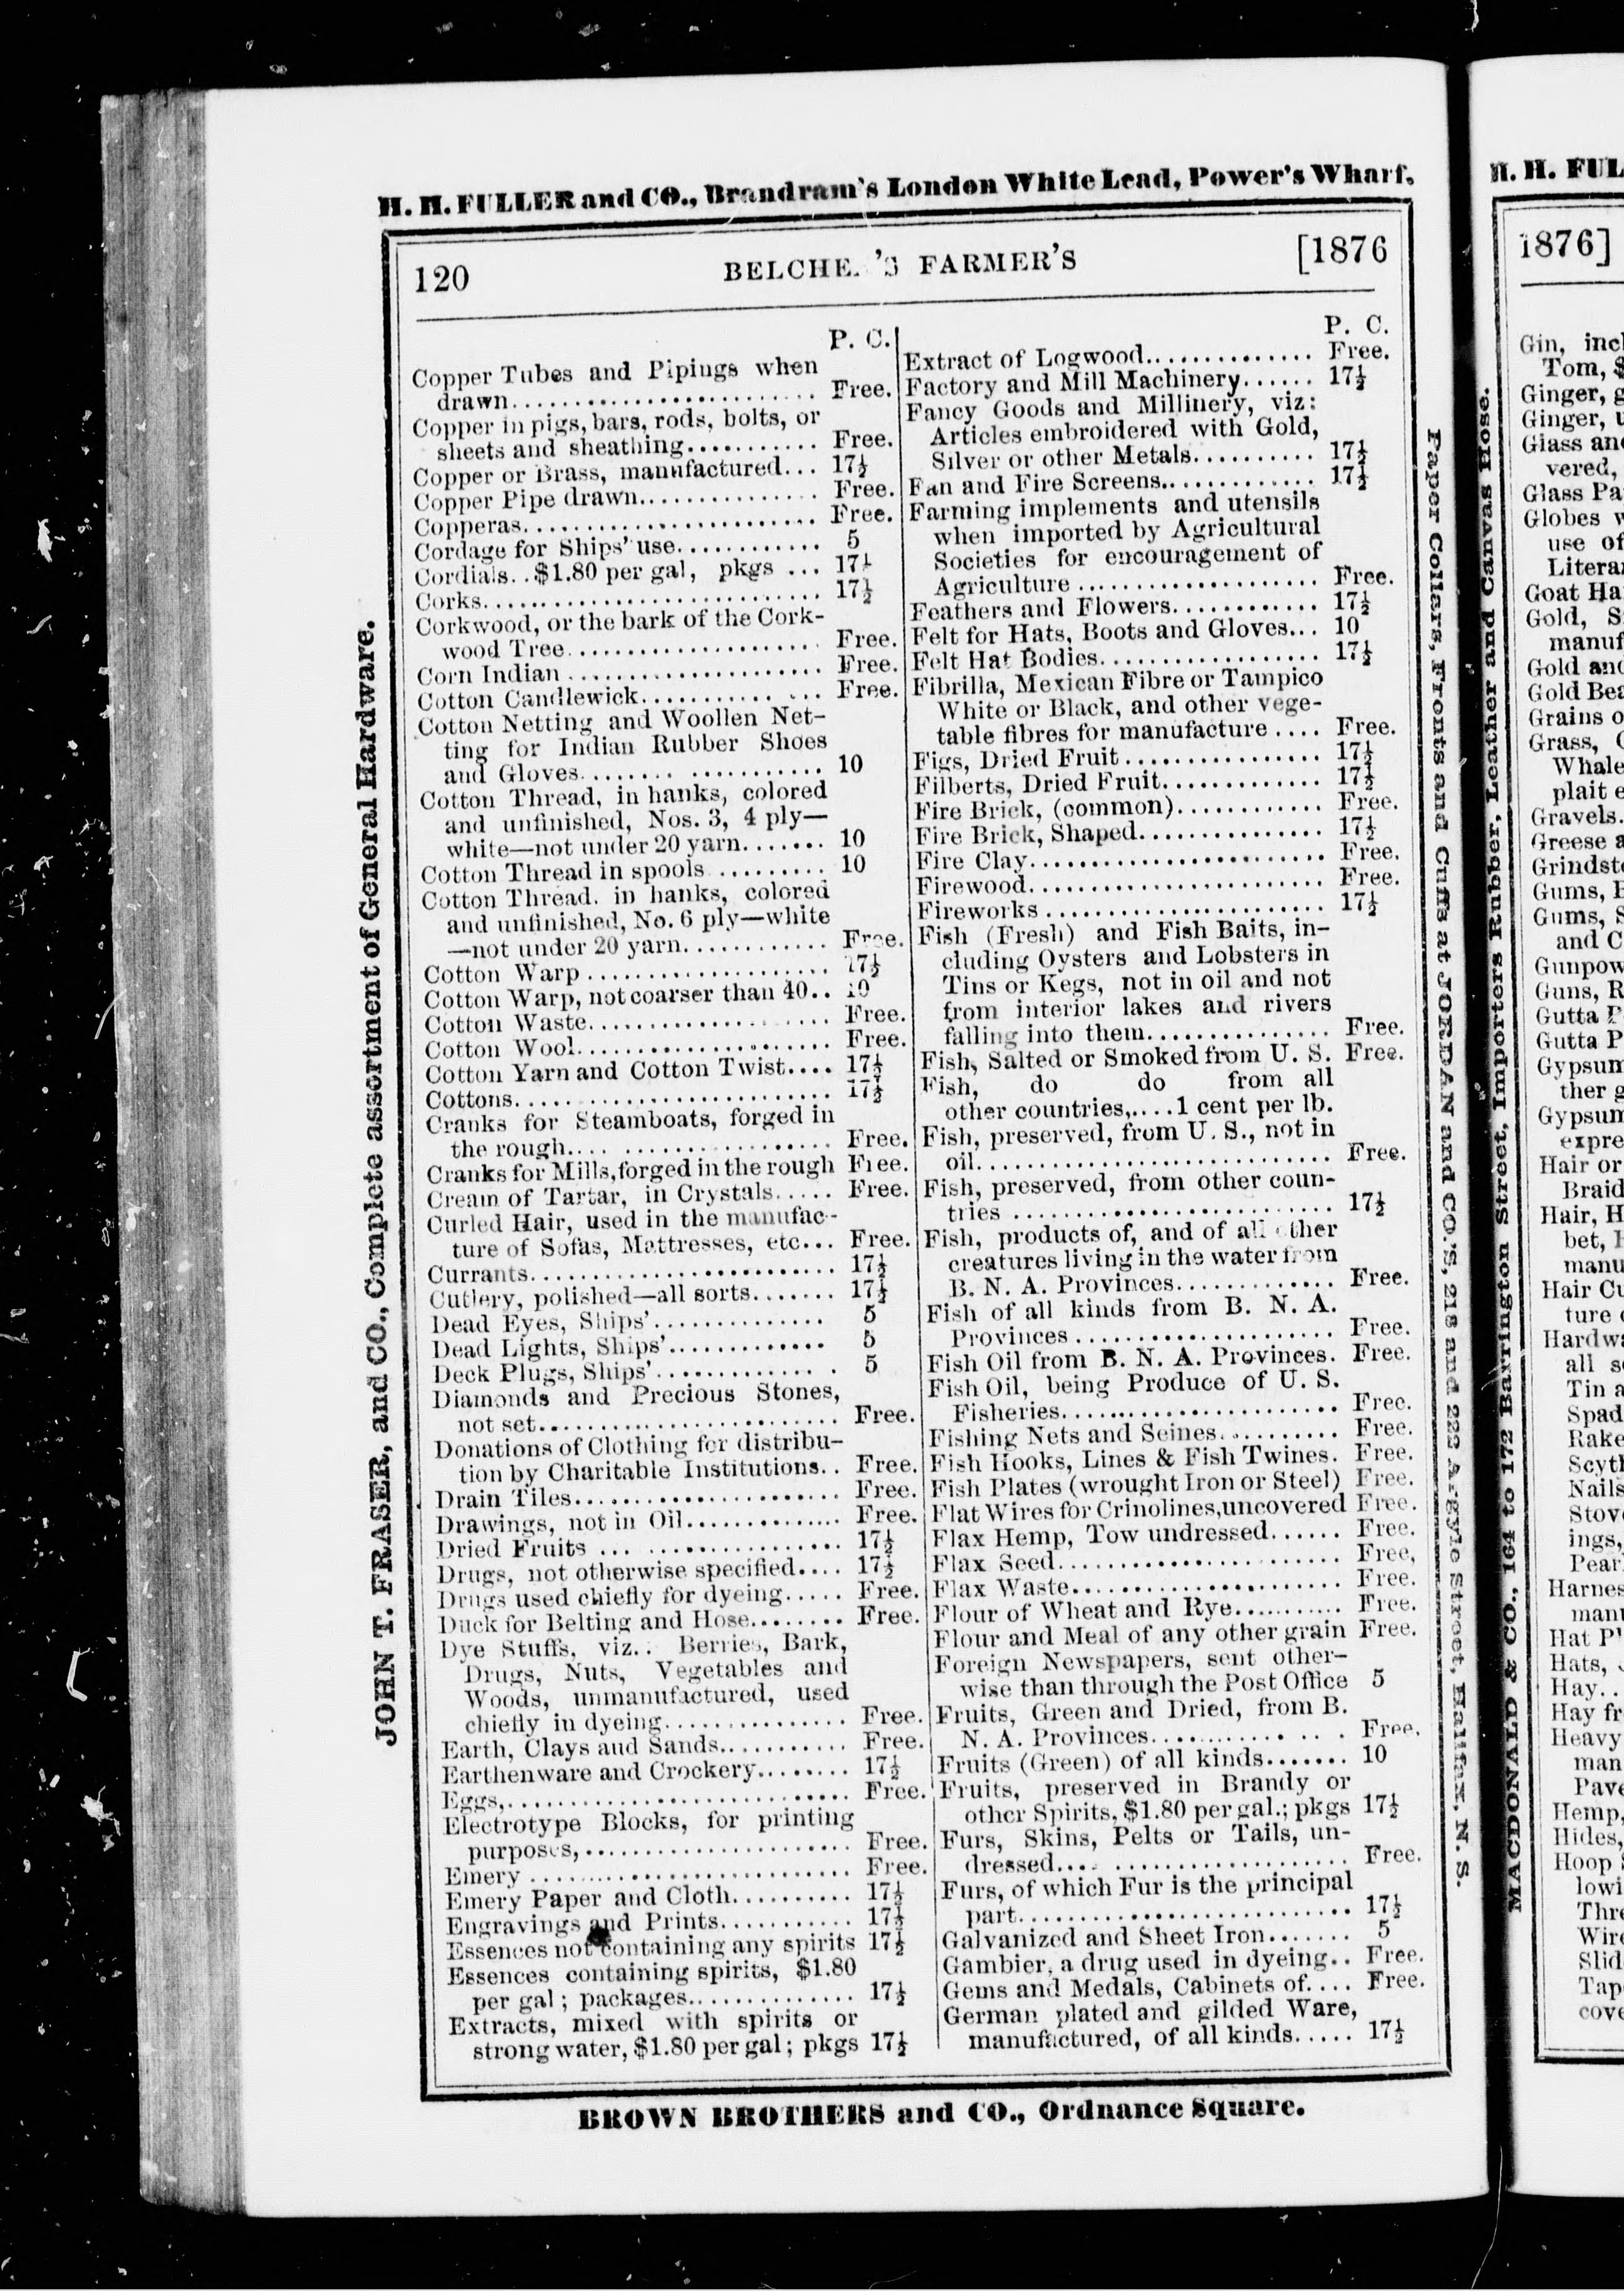 H. H. FULLER and CO., Brandram's London White Lead, Power's Wharf.
120 BELCHE. 'S FARMER'S [1876
P. C.
Copper Tubes and Pipings when
drawn........................ Free.
Copper in pigs, bars, rods, bolts, or
sheets and sheathing........... Free.
Copper or Brass, manufactured... 17½
Copper Pipe drawn................ Free.
Copperas........................ Free.
Cordage for Ships' use............ 5
Cordials..$1.80 per gal, pkgs ... 17½
Corks............................ 17½
Corkwood, or the bark of the Cork-
wood Tree...................... Free.
Corn Indian ...................... Free.
Cotton Candlewick............ ... Free.
Cotton Netting and Woollen Net-
ting for Indian Rubber Shoes
and Gloves........ ............ 10
Cotton Thread, in hanks, colored
and unfinished, Nos. 3, 4 ply—
white—not under 20 yarn....... 10
Cotton Thread in spools .......... 10
Cotton Thread. in hanks, colored
and unfinished, No. 6 ply—white
—not under 20 yarn............ Free.
Cotton Warp ...................... 17½
Cotton Warp, not coarser than 40.. 10
Cotton Waste...................... Free.
Cotton Wool...................... Free.
Cotton Yarn and Cotton Twist.... 17½
Cottons............................ 17½
Cranks for Steamboats, forged in
the rough.... .................. Free.
Cranks for Mills, forged in the rough Free.
Cream of Tartar, in Crystals..... Free.
Curled Hair, used in the manufac-
ture of Sofas, Mattresses, etc... Free.
Currants.......................... 17½
Cutlery, polished—all sorts........ 17½
Dead Eyes, Ships'.............. 5
Dead Lights, Ships'............. 5
Deck Plugs, Ships'............. . 5
Diamonds and Precious Stones,
not set.......................... Free.
Donations of Clothing for distribu-
tion by Charitable Institutions.. Free.
Drain Tiles........................ Free.
Drawings, not in Oil............... Free.
Dried Fruits ... .................. 17½
Drugs, not otherwise specified.... 17½
Drugs used chiefly for dyeing..... Free.
Duck for Belting and Hose........ Free.
Dye Stuffs, viz.. Berries, Bark,
Drugs, Nuts, Vegetables and
Woods, unmanufactured, used
chiefly in dyeing................ Free.
Earth, Clays and Sands............ Free.
Earthenware and Crockery......... 17½
Eggs,.............................. Free.
Electrotype Blocks, for printing
purposes,........................ Free.
Emery ............................ Free.
Emery Paper and Cloth........... 17½
Engravings and Prints............ 17½
Essences not containing any spirits 17½
Essences containing spirits, $1.80
per gal; packages................ 17½
Extracts, mixed with spirits or
strong water, $1.80 per gal; pkgs 17½
P. C.
Extract of Logwood............... Free.
Factory and Mill Machinery...... 17½
Fancy Goods and Millinery, viz:
Articles embroidered with Gold,
Silver or other Metals........... 17½
Fan and Fire Screens.............. 17½
Farming implements and utensils
when imported by Agricultural
Societies for encouragement of
Agriculture ...................... Free.
Feathers and Flowers............. 17½
Felt for Hats, Boots and Gloves... 10
Felt Hat Bodies................... 17½
Fibrilla, Mexican Fibre or Tampico
White or Black, and other vege-
table fibres for manufacture .... Free.
Figs, Dried Fruit.................. 17½
Filberts, Dried Fruit.............. 17½
Fire Brick, (common)............. Free.
Fire Brick, Shaped................ 17½
Fire Clay.......................... Free.
Firewood.......................... Free.
Fireworks ........................ 17½
Fish (Fresh) and Fish Baits, in-
cluding Oysters and Lobsters in
Tins or Kegs, not in oil and not
from interior lakes and rivers
falling into them................ Free.
Fish, Salted or Smoked from U. S. Free.
Fish, do do from all
other countries,....1 cent per lb.
Fish, preserved, from U. S., not in
oil.............................. Free.
Fish, preserved, from other coun-
tries ............................ 17½
Fish, products of, and of all other
creatures living in the water from
B. N. A. Provinces.............. Free.
Fish of all kinds from B. N. A.
Provinces ........................ Free.
Fish Oil from B. N. A. Provinces. Free.
Fish Oil, being Produce of U. S.
Fisheries........................ Free.
Fishing Nets and Seines........... Free.
Fish Hooks, Lines & Fish Twines. Free.
Fish Plates (wrought Iron or Steel) Free.
Flat Wires for Crinolines, uncovered Free.
Flax Hemp, Tow undressed...... Free.
Flax Seed.......................... Free,
Flax Waste........................ Free.
Flour of Wheat and Rye........... Free.
Flour and Meal of any other grain Free.
Foreign Newspapers, sent other-
wise than through the Post Office 5
Fruits, Green and Dried, from B.
N. A. Provinces.................. Free.
Fruits (Green) of all kinds....... 10
Fruits, preserved in Brandy or
other Spirits, $1.80 per gal.; pkgs 17½
Furs, Skins, Pelts or Tails, un-
dressed.... ...................... Free.
Furs, of which Fur is the principal
part.............................. 17½
Galvanized and Sheet Iron....... 5
Gambier, a drug used in dyeing.. Free.
Gems and Medals, Cabinets of.... Free.
German plated and gilded Ware,
manufactured, of all kinds..... 17½
BROWN BROTHERS and CO., Ordnance Square.
JOHN T. FRASER, and CO., Complete assortment of General Hardware.
Paper Collars, Fronts and Cuffs at JORDAN and CO.'S, 218 and 222 Argyle Street, Halifax, N. S.
MACDONALD & CO., 164 to 172 Barrington Street, Importers Rubber, Leather and Canvas Hose.
H. H. FUL
1876]
Gin, incl
Tom, $
Ginger, g
Ginger, u
Glass an
vered,
Glass Pa
Globes w
use of
Litera
Goat Ha
Gold, S
manuf
Gold and
Gold Bea
Grains o
Grass, 
Whale
plait e
Gravels.
Greese a
Grindst
Gums, B
Gums, S
and C
Gunpow
Guns, R
Gutta P
Gutta P
Gypsum
ther g
Gypsum
expre
Hair or
Braid
Hair, H
bet, 
manu
Hair Cu
ture 
Hardwa
all s
Tin a
Spad
Rake
Scyth
Nails
Stov
ings,
Pear
Harnes
man
Hat P
Hats,
Hay..
Hay fr
Heavy
man
Pave
Hemp,
Hides,
Hoop
lowi
Thre
Wire
Slid
Tap
cove